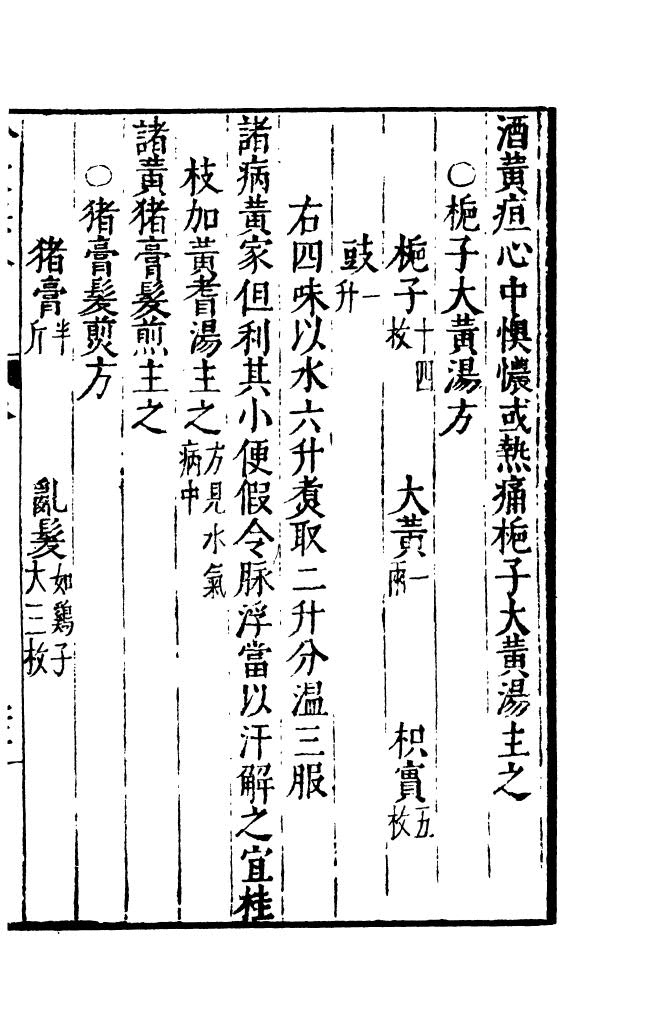 酒黃疸心中懊憹或熱痛梔子大黃湯主之
○梔子大黃湯方
梔子十四枚 大黃一兩 枳實五枚
豉一升
右四味以水六升煑取二升分溫三服
諸病黃家但利其小便假令脉浮當以汗解之宜桂
枝加黃耆湯主之方見水氣病中
諸黃猪膏髮煎主之
○猪膏髮煎方
猪膏半斤 亂髮如鷄子大三枚